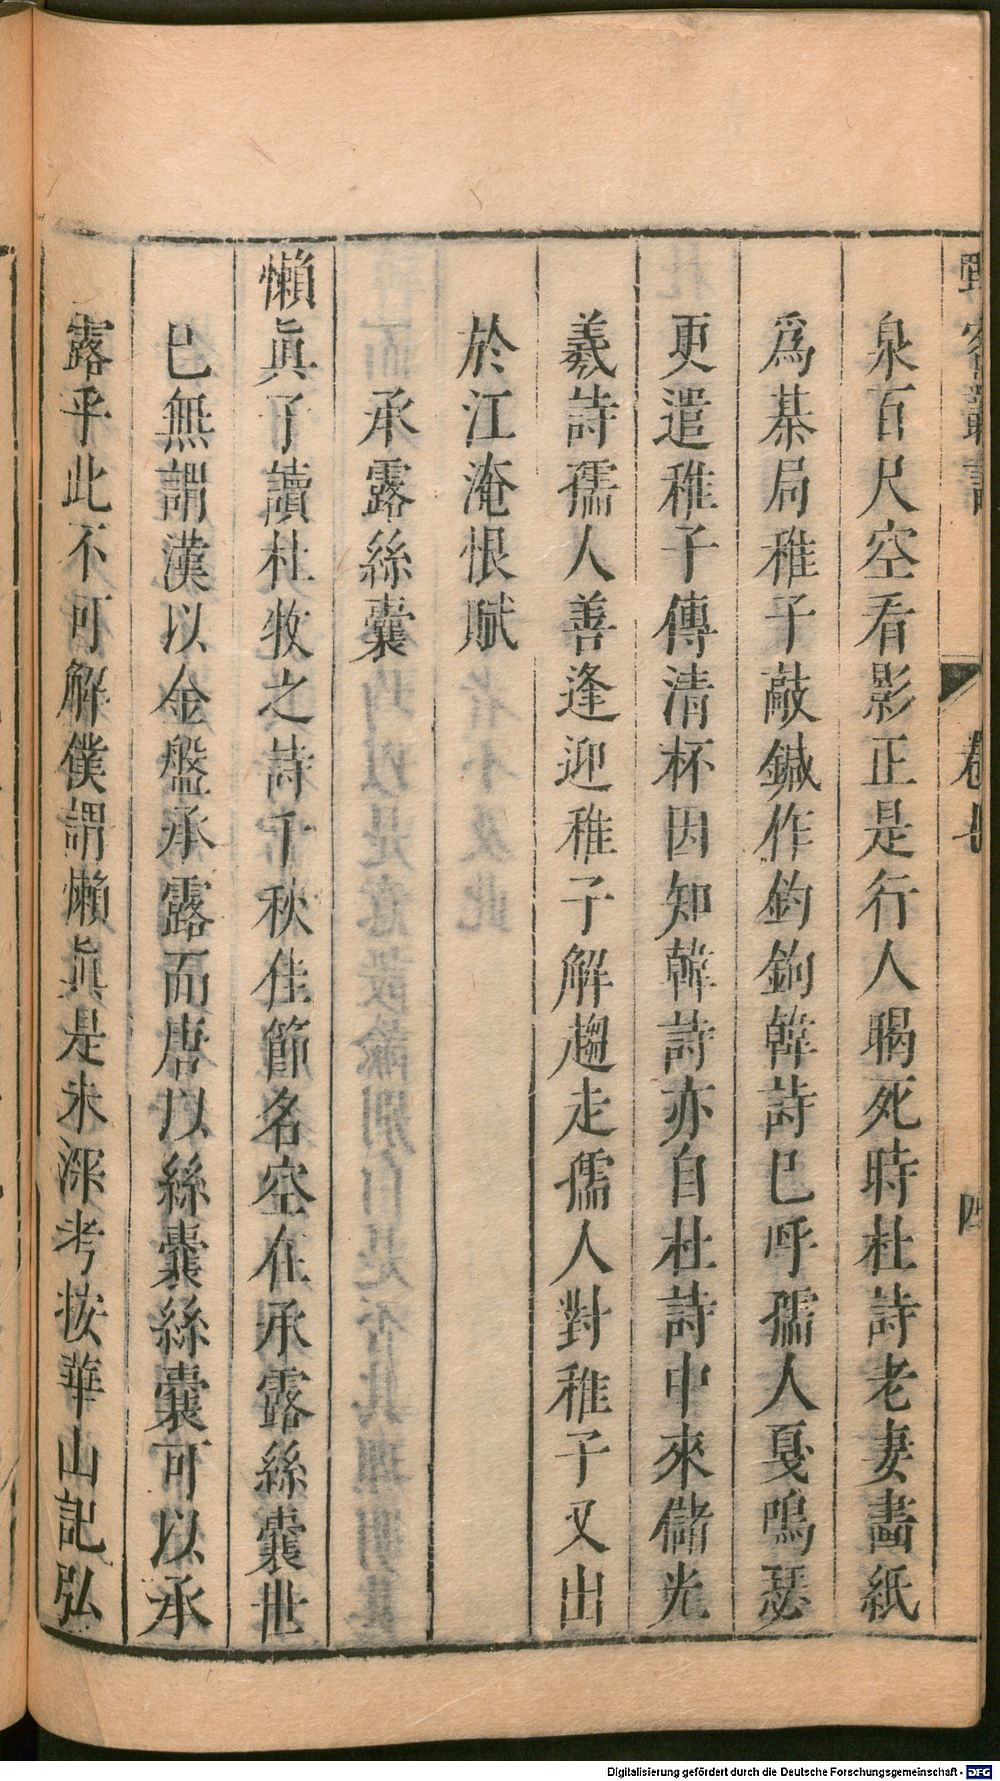 野客叢書 卷七 四
泉百尺空看影正是行人暍死時杜詩老妻畵紙
爲棊局稚子敲鍼作釣鉤韓詩已呼孺人戛鳴瑟
更遣稚子傳清杯因知韓詩亦自杜詩中來儲光
羲詩孺人善逢迎稚子解趨走孺人對稚子又出
於江淹恨賦
承露絲囊
懶眞子讀杜牧之詩千秋佳節名空在承露絲囊世
已無謂漢以金盤承露而唐以絲囊絲囊可以承
露乎此不可解僕謂懶眞是未深考按華山記弘
Digitalisierung gefördert durch die Deutsche Forschungsgemeinschaft - DFG